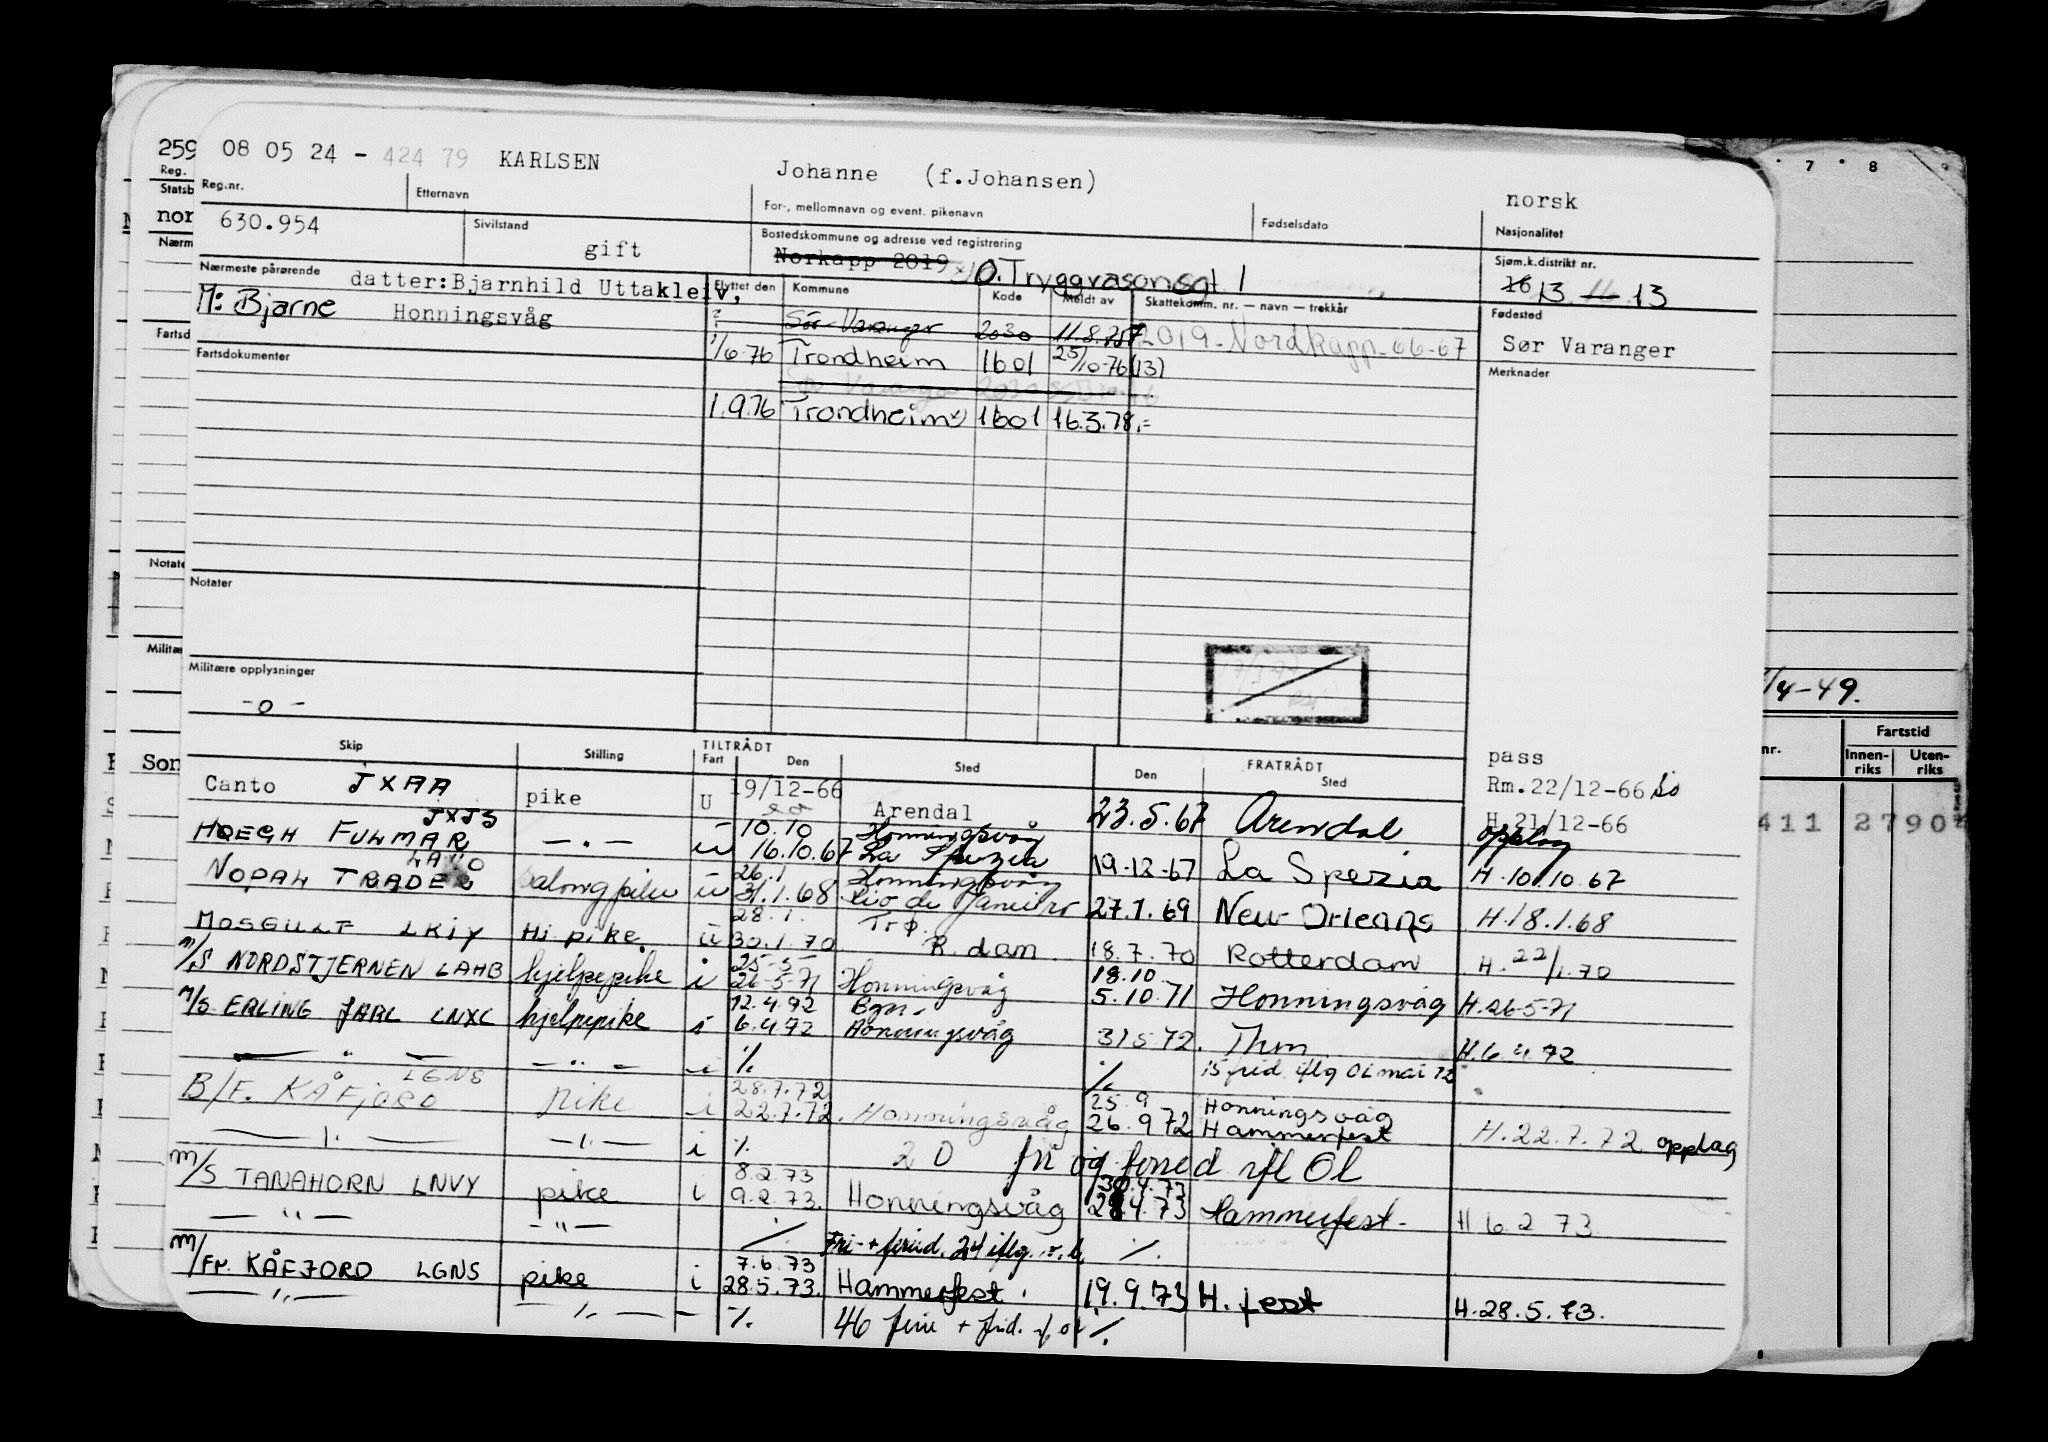 259 08 05 24 - 424 79 KARLSEN Johanne (f.Johansen) norsk
Reg. Reg.nr. Etternavn For-, mellomnavn og event. pikenavn Fødselsdato Nasjonalitet
Statsb
nor 630.954 Sivilstand gift Bostedskommune og adresse ved registrering Sjøm.k.distrikt nr.
Norkapp 2019 O.Tryggvasonsgt 1 16 13 11 13
Nærm Nærmeste pårørende datter:Bjarnhild Uttakleiv, Flyttet den Kommune Kode Meldt av Skattekomm. nr. — navn — trekkår Fødested
M: Bjarne Honningsvåg ? Sør-Varanger 2030 11.8. 2019-Nordkapp-66-67 Sør Varanger
Fartsd Fartsdokumenter 1/6-76 Trondheim 1601 25/10-76 (13) Merknader
Sør Varanger 2030
1.9.76 Trondheim 1601 16.3.78.=
Notate Notater
Militæ Militære opplysninger
-o-
1/4-49.
Skip Stilling TILTRÅDT FRATRÅDT pass nr. Fartstid
Fart Den Sted Den Sted Innen-riks Uten-riks
Son Canto JXAA pike U 19/12-66 Arendal 23.5.67 Arendal Rm.22/12-66
H.21/12-66 opplag 411 2790
HØEGH FULMAR JXJS — " — u 10.10 Honningsvåg
16.10.67 La Spezia 19-12-67 La Spezia H.10.10.67
NOPAL TRADER salongpike u 26.1 Honningsvåg
31.1.68 Rio de Janeiro 27.1.69 New Orleans H.18.1.68
MOSGULF LKIY Hj pike u 28.1. Trø.
30.1.70 R.dam 18.7.70 Rotterdam H.22/1.70
M/S NORDSTJERNEN LAHB hjelpepike i 25-5-
26-5-71 Honningsvåg 18.10
5.10.71 Honningsvåg H.26-5-71
M/S ERLING JARL LNXC hjelpepike i 12.4.92 Bgn.
6.4.92 Honningsvåg 31.5.72. Thm H.6.4.72
— " — — " — i % % 15 fud iflg OL mai 72
B/F. KÅFJORD LGNS pike i 28.7.72
22.7.72. Honningsvåg 25.9 Honningsvåg
26.9.72 Hammerfest H.22.7.72 opplag
— " — — " — i % 20 fri og fered ifl OL
M/S TANAHORN LNVY pike i 8.2.73
9.2.73. Honningsvåg 30.4.73
28.4.73 Hammerfest- H 6.2.73.
— " — — " — % Fri + ferid. 24 iflg. %
M/Fr. KÅFJORD LGNS pike i 7.6.73
28.5.73. Hammerfest. 19.9.73 H.fest H.28.5.73.
— " — — " — — % 46 ferie + frid. %